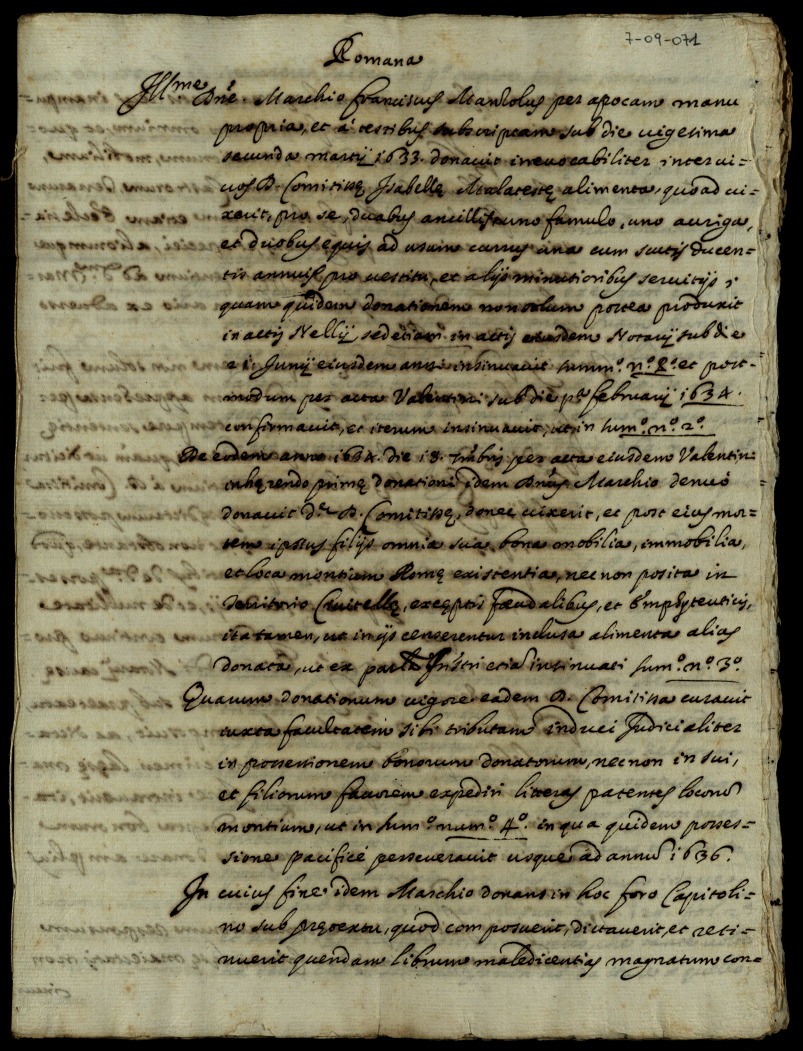 7-09-071
Romana
Ill.me Dne. Marchio Franciscus Mantolus per apocam manu
propria, et à testibus subscriptam sub die vigesima
secunda martij 1633. donavit irrevocabiliter inter vi=
vos D. Comitissę Isabellę Malatestę alimenta, quoad vi=
xerit, pro se, duabus ancillis, uno famulo, uno auriga,
et duobus equis ad usum currus una cum scutis ducen=
tis annuis pro vestitu, et alijs minutioribus servitijs,
quam quidem donationem non solum postea produxit
in actis Nellij, sed etiam in actis eiusdem Notarij sub die
21. Junij eiusdem anni insinuavit summ.o n.o et post=
modum per acta Valentini sub die p.a februarij 1634.
confirmavit, et iterum insinuavit, ut in sum.o n.o 2.o
De eodem anno 1634. die 18. per acta eiusdem Valentin:
inhęrendo primę donationi idem Dnus Marchio denuò
donavit d.ę D. Comitissę, donec vixerit, et post eius mor=
tem ipsius filijs omnia sua bona mobilia, immobilia,
et loca montium Romę existentia, nec non posita in
territorio Civitellę, exceptis fęudalibus, et emphyteuticis,
ita tamen, ut in ijs censerentur inclusa alimenta alias
donata, ut ex Instri etiã insinuati sum.o n.o 3.o
Quarum donationum vigore eadem D. Comitissa curavit
iuxta facultatem sibi tributam induci Judicialiter
in possessionem bonorum donatorum, nec non in sui,
et filiorum favorem expediri litteras patentes locorũ
montium, ut in sum.o num.o 4.o in qua quidem posses=
sione pacificè perseveravit usque ad annũ 1636.
In cuius fine idem Marchio donans in hoc foro Capitoli=
no sub prętextu, quòd composuerit, dictaverit, et reti=
nuerit quendam librum maledicentias magnatum con=